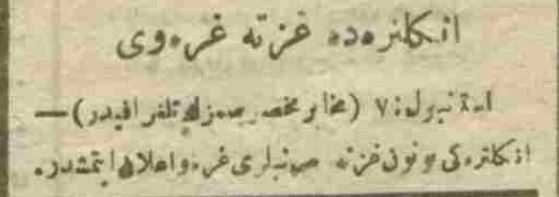 انكلتره‌ده غزته غره‌وی
استانبول: ۷ (مخابر مخصوصمزك تلغرافیدر) —
انكلتره‌كی بوتون غزته صاحبلری غره‌و اعلان ایتمشدر.